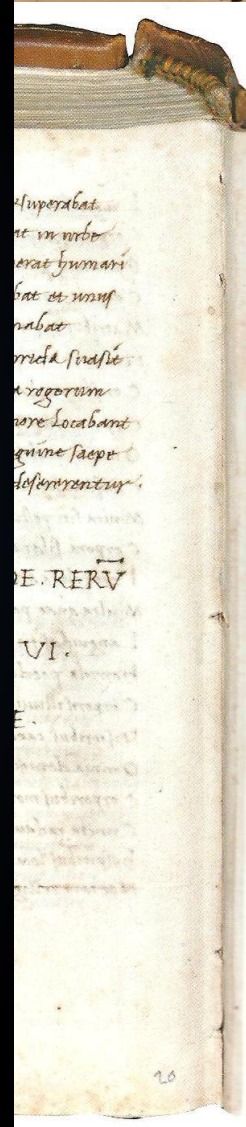 superabat
at in urbe
erat humari
bat et unus
nabat
suasit
rogorum
more locabant
guine saepe
desererentur.
DE. RERV̄
VI.
E.
20